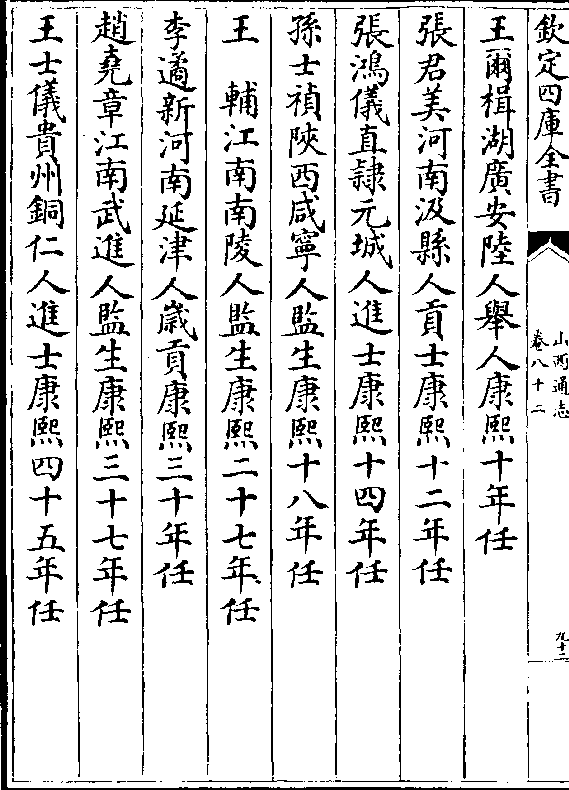 欽定四庫全書
山西通志
卷八十二
九十二
王爾楫湖廣安陸人舉人康熙十年任
張君美河南汲縣人貢士康熙十二年任
張鴻儀直隸元城人進士康熙十四年任
孫士禎陝西咸寧人監生康熙十八年任
王　輔江南南陵人監生康熙二十七年任
李遹新河南延津人歲貢康熙三十年任
趙堯章江南武進人監生康熙三十七年任
王士儀貴州銅仁人進士康熙四十五年任